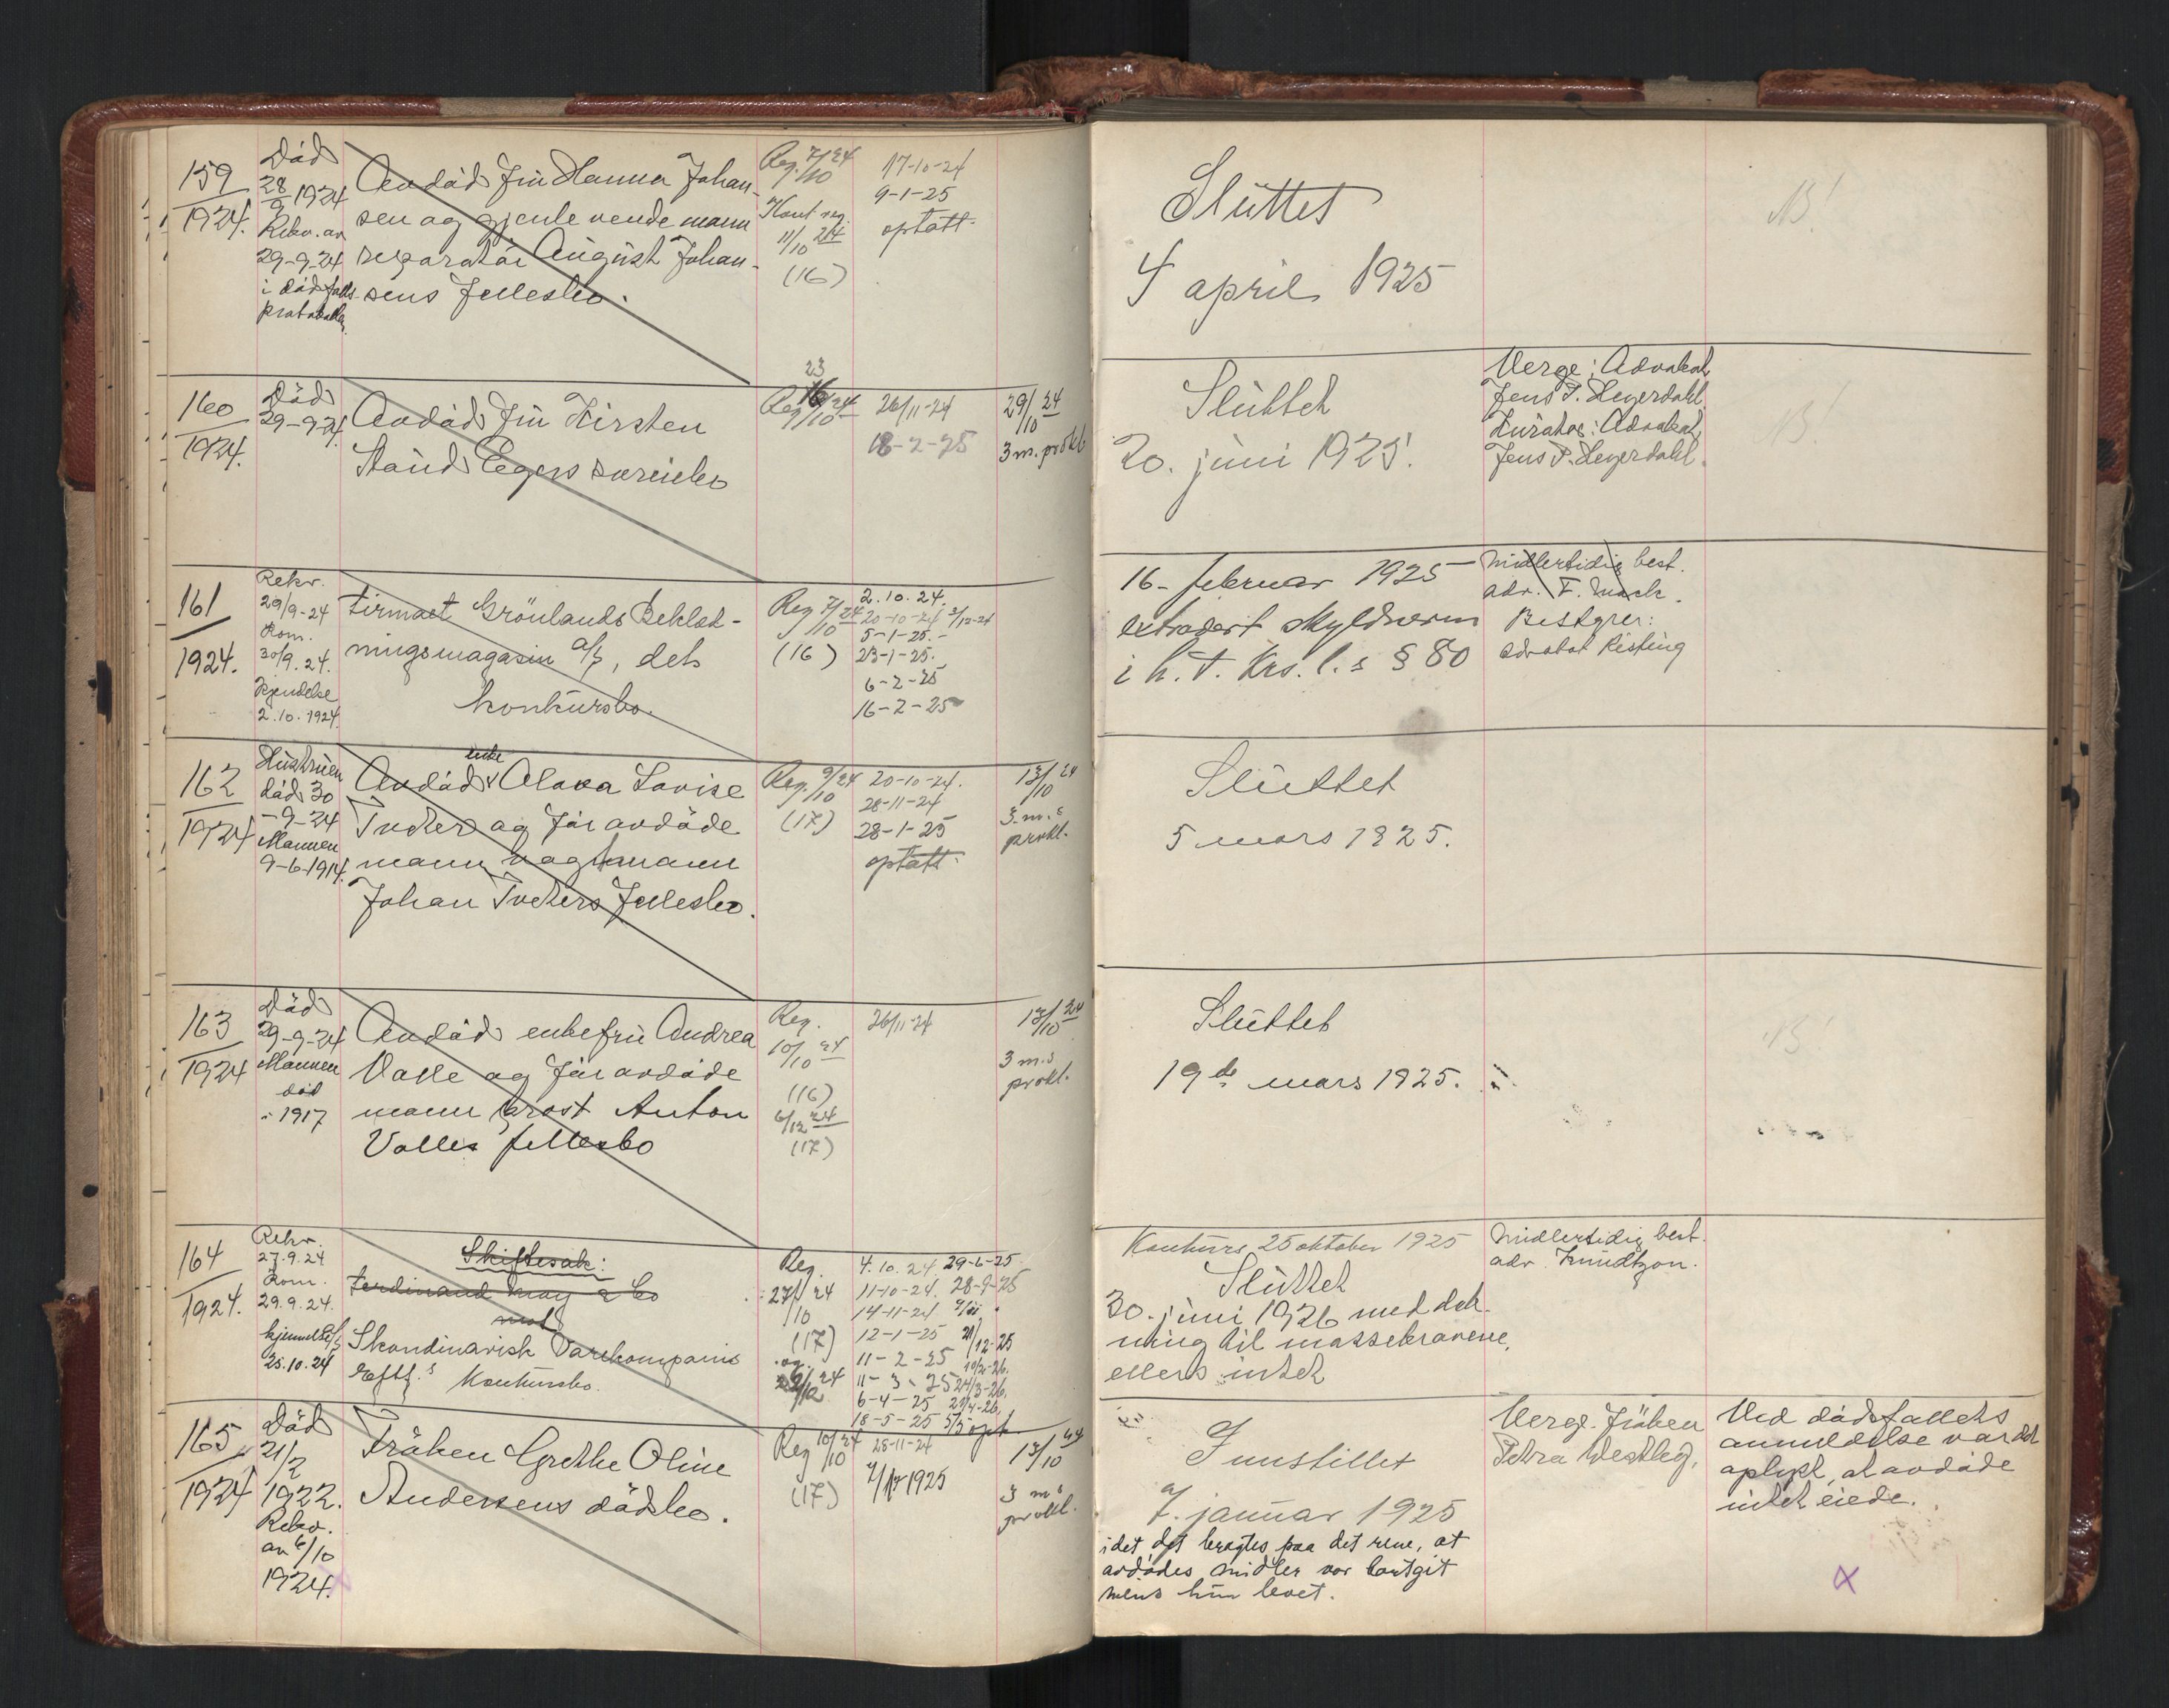 159
1924.
Död
28
9 1924
Rekv. av
29-9-24
i dödsfalls
protokollen
Avdöd frü Hanna Johan-
sen og gjenlevende mann
reparatör Aügüst Johan-
sens fellesbo.
Reg. 7/10 24
Kont reg.
11/10 24
(16)
17-10-24
9-1-25
optatt.
Slüttet
4 april 1925
NB!
160
1924.
Död
29-9-24.
Avdöd frü Kirsten
Staüd Egers særeiebo
23
16
Reg 9/10 24
26/11-24
18-2-25
29/10 24
3 m. prokl
Slüttet
20. jüni 1925.
Verge: Advokat
Jens P. Heyerdahl
Kürator: Advokat
Jens P. Heyerdahl.
NB!
161
1924.
Rekv.
29/9-24
Kom.
30/9. 24.
Kjendelse
2.10.1924.
Firmaet Grönlands Beklæd-
ningsmagasin A/S, dets
konkürsbo.
Reg 7/10 24
(16)
2.10.24.
20-10-24 3/12-24
5-1-25.-
23-1-25.
6-2-25
16-2-25
16- febrüar 1925
extradert skyldneren
i h. t. Krs. l. s § 80
Midlertidig best.
adv. F. Mack.
Bestyrer:
advokat Risting
162
1924
Hüstrüen
död 30
-9-24
Mannen
9-6-1914.
enke
Avdöd Alova Lovise
Tveter og för avdöde
mann vogtmann
Johan Tveters fellesbo.
Reg. 9/10 24
(17)
20-10-24.
28-11-24
28-1-25
optatt.
13/10 24
3 m.s
prokl.
Slüttet
5 mars 1925.
163
1924
Död
29-9-24
Mannen
död
i 1917
Avdöd enkefrü Andrea
Valle og för avdöde
mann prost Anton
Valles fellesbo
Reg.
10/10 24
(16)
6/12 24
(17)
26/11-24
13/10 24
3 m.s
prokl.
Slüttet
19de mars 1925.
NB!
164
1924.
Rekv.
27.9.24
Kom.
29.9.24.
kjennelse
25.10.24
Skiftesak:
Ferdinand May & Co
mot
Skandinavisk Varekompani
Eftf.s Konkürsbo.
Reg.
27/10 24
(17)
og.
4.10.24 29-6-25
11-10-24. 28-9-25
14-11-24
12-1-25 21/12-25
11-2-25 10/2-26.
11-3-25 24/3-26.
6-4-25 29/4-26.
18-5-25 5/5 opt.
Konkürs 25 oktober 1925
Slüttet
30. jüni 1926 med dek-
ning til massekravene,
ellers intet
Midlertidig best.
adv. Knüdtzon.
165
1924
Död
21/2
1922.
Rekv.
av 6/10
1924.
Fröken Grethe Oline
Andersens dödsbo.
Reg 10/10 24
(17)
28-11-24
7/1-1925
13/10 24
3 m s
prokl.
Innstillet
7. janüar 1925
idet det bragtes paa det rene, at
avdödes midler var bortgit
mens hün levet.
Verge. Fröken
Petra Westbeg.
Ved dödsfallets
anmeldelse var det
oplyst, at avdöde
intet eiede.
x